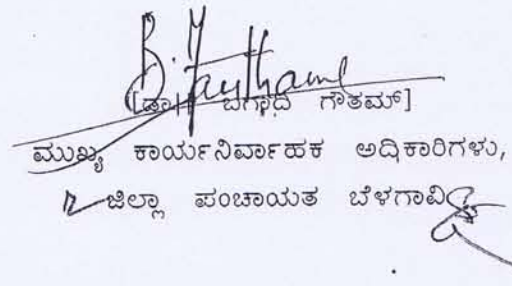 [ಡಾ|| ಬಗಾದಿ ಗೌತಮ್]
ಮುಖ್ಯ ಕಾರ್ಯನಿರ್ವಾಹಕ ಅಧಿಕಾರಿಗಳು,
ಜಿಲ್ಲಾ ಪಂಚಾಯತ ಬೆಳಗಾವಿ